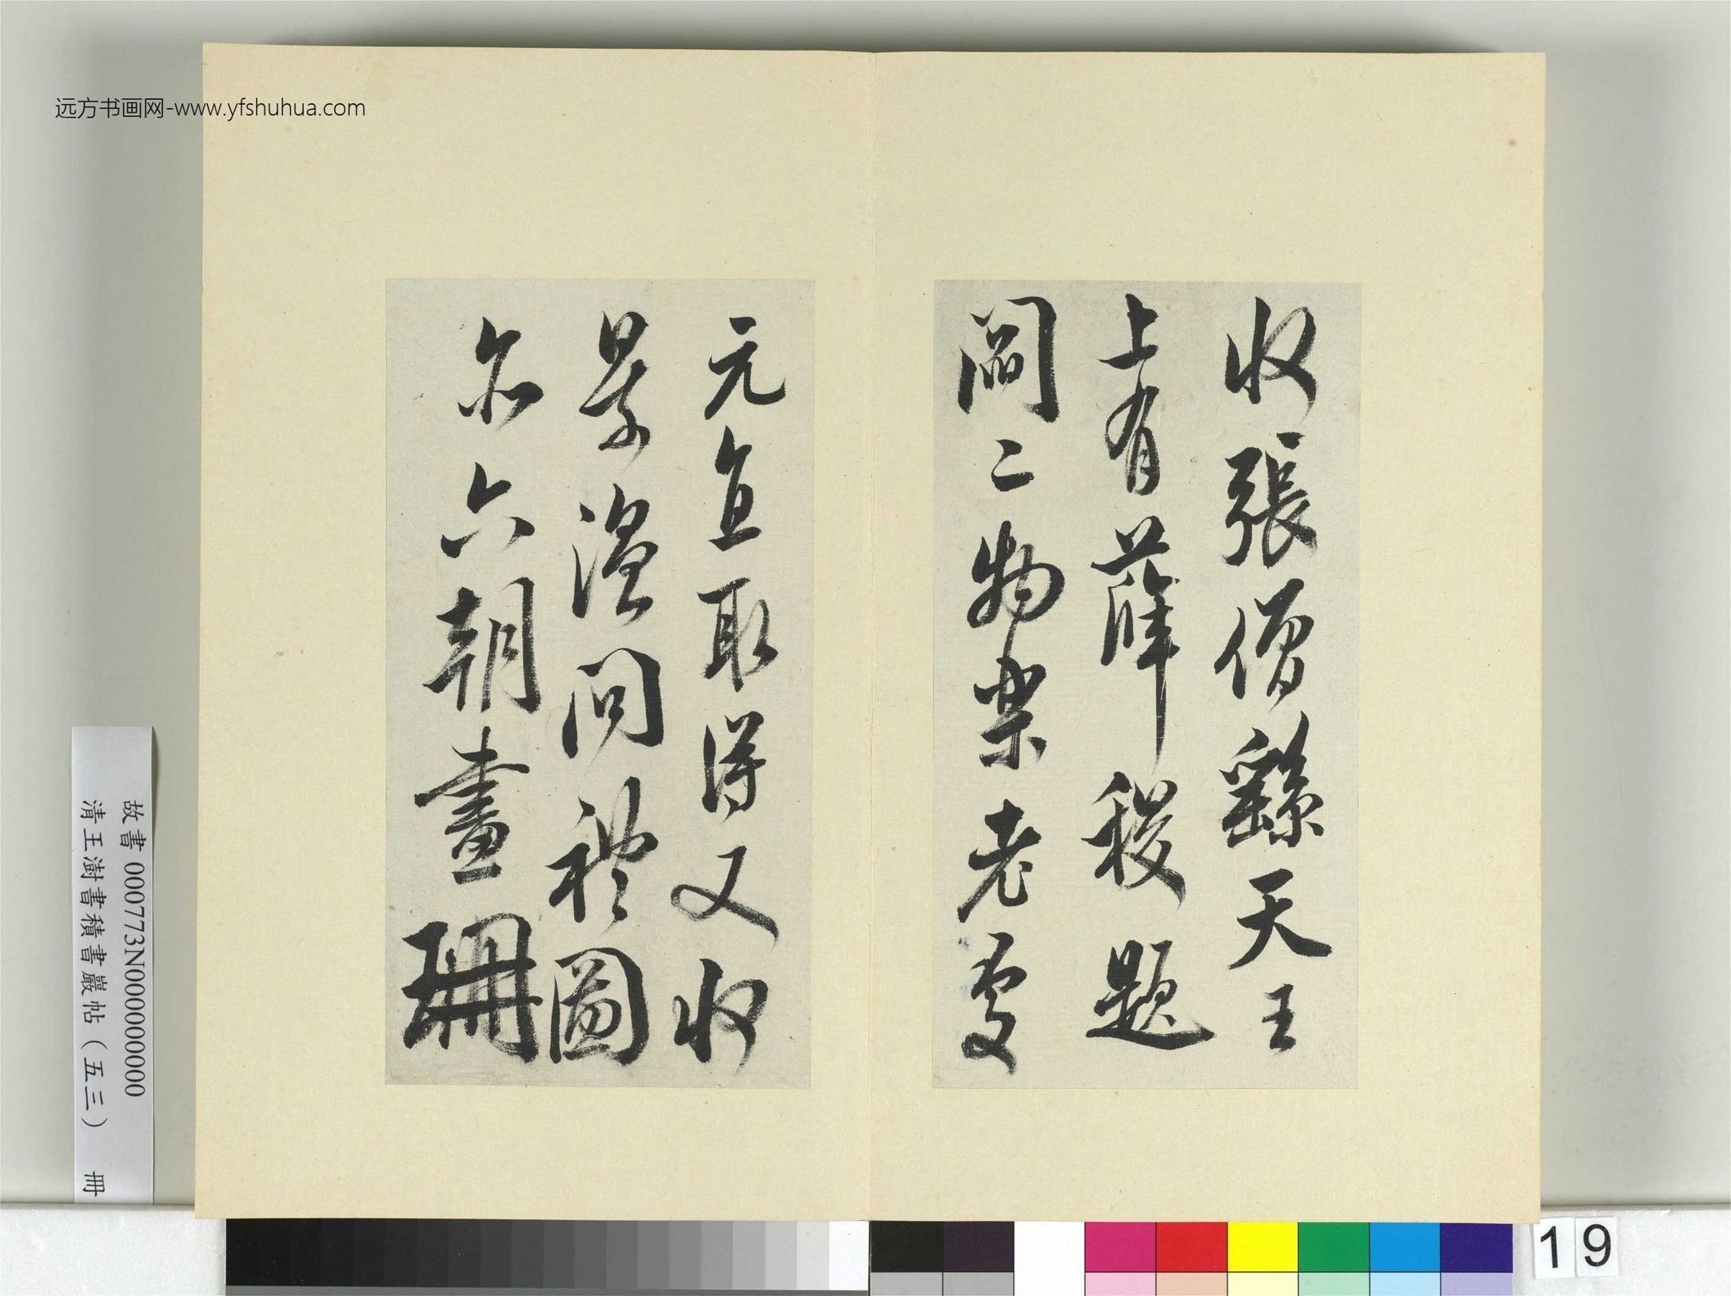 远方书画网-www.yfshuhua.com
收張僧繇天王
上有薛稷題
閻二物樂老處
元直取得又收
景溫問禮圖
亦六朝畫珊
故書 000773N000000000
清王澍書積書巖帖（五三） 冊
19